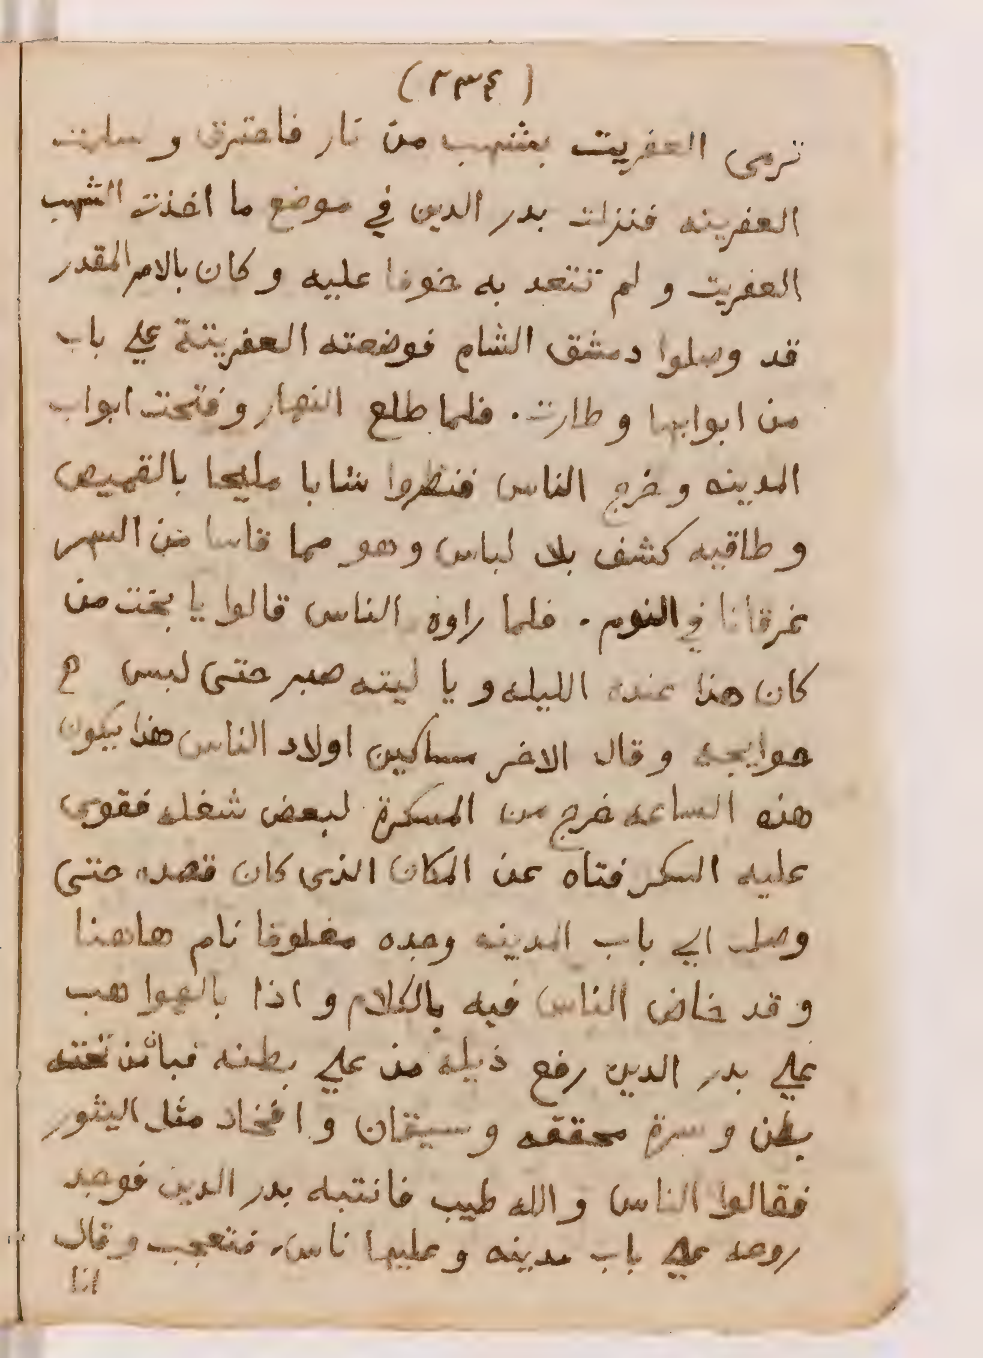 (٢٣٤)
ترمى العفريت بشهب من نار فاحترق و سلمت
العفريته فنزلت بدر الدين في موضع ما اخذت الشهب
العفريت و لم تتعد به خوفا عليه و كان بالامر المقدر
قد وصلوا دمشق الشام فوضعته العفريتة علي باب
من ابوابها و طارت. فلما طلع النهار و فتحت ابواب
المدينه و خرج الناس فنظروا شابا مليحا بالقميص
و طاقيه كشف بلا لباس و هو مما قاسا من السهر
غرقانا في النوم. فلما راوه الناس قالوا يا بخت من
كان هذا عنده الليله و يا ليته صبر حتى لبس
حوايجه و قال الاخر مساكين اولاد الناس هذا يكون
هذه الساعه خرج من المسكرة لبعض شغله فقوى
عليه السكر فتاه عن المكان الذى كان قصده حتى
وصل الي باب المدينه وجده مغلوقا نام هاهنا
و قد خاض الناس فيه بالكلام و اذا بالهوا هب
علي بدر الدين رفع ذيله من علي بطنه فبان من تحته
بطن و سرة محققه و سيقان و افخاد مثل البنور
فقالوا الناس و الله طيب فانتبه بدر الدين فوجد
روحه علي باب مدينه و عليها ناس. فتعجب و قال
انا